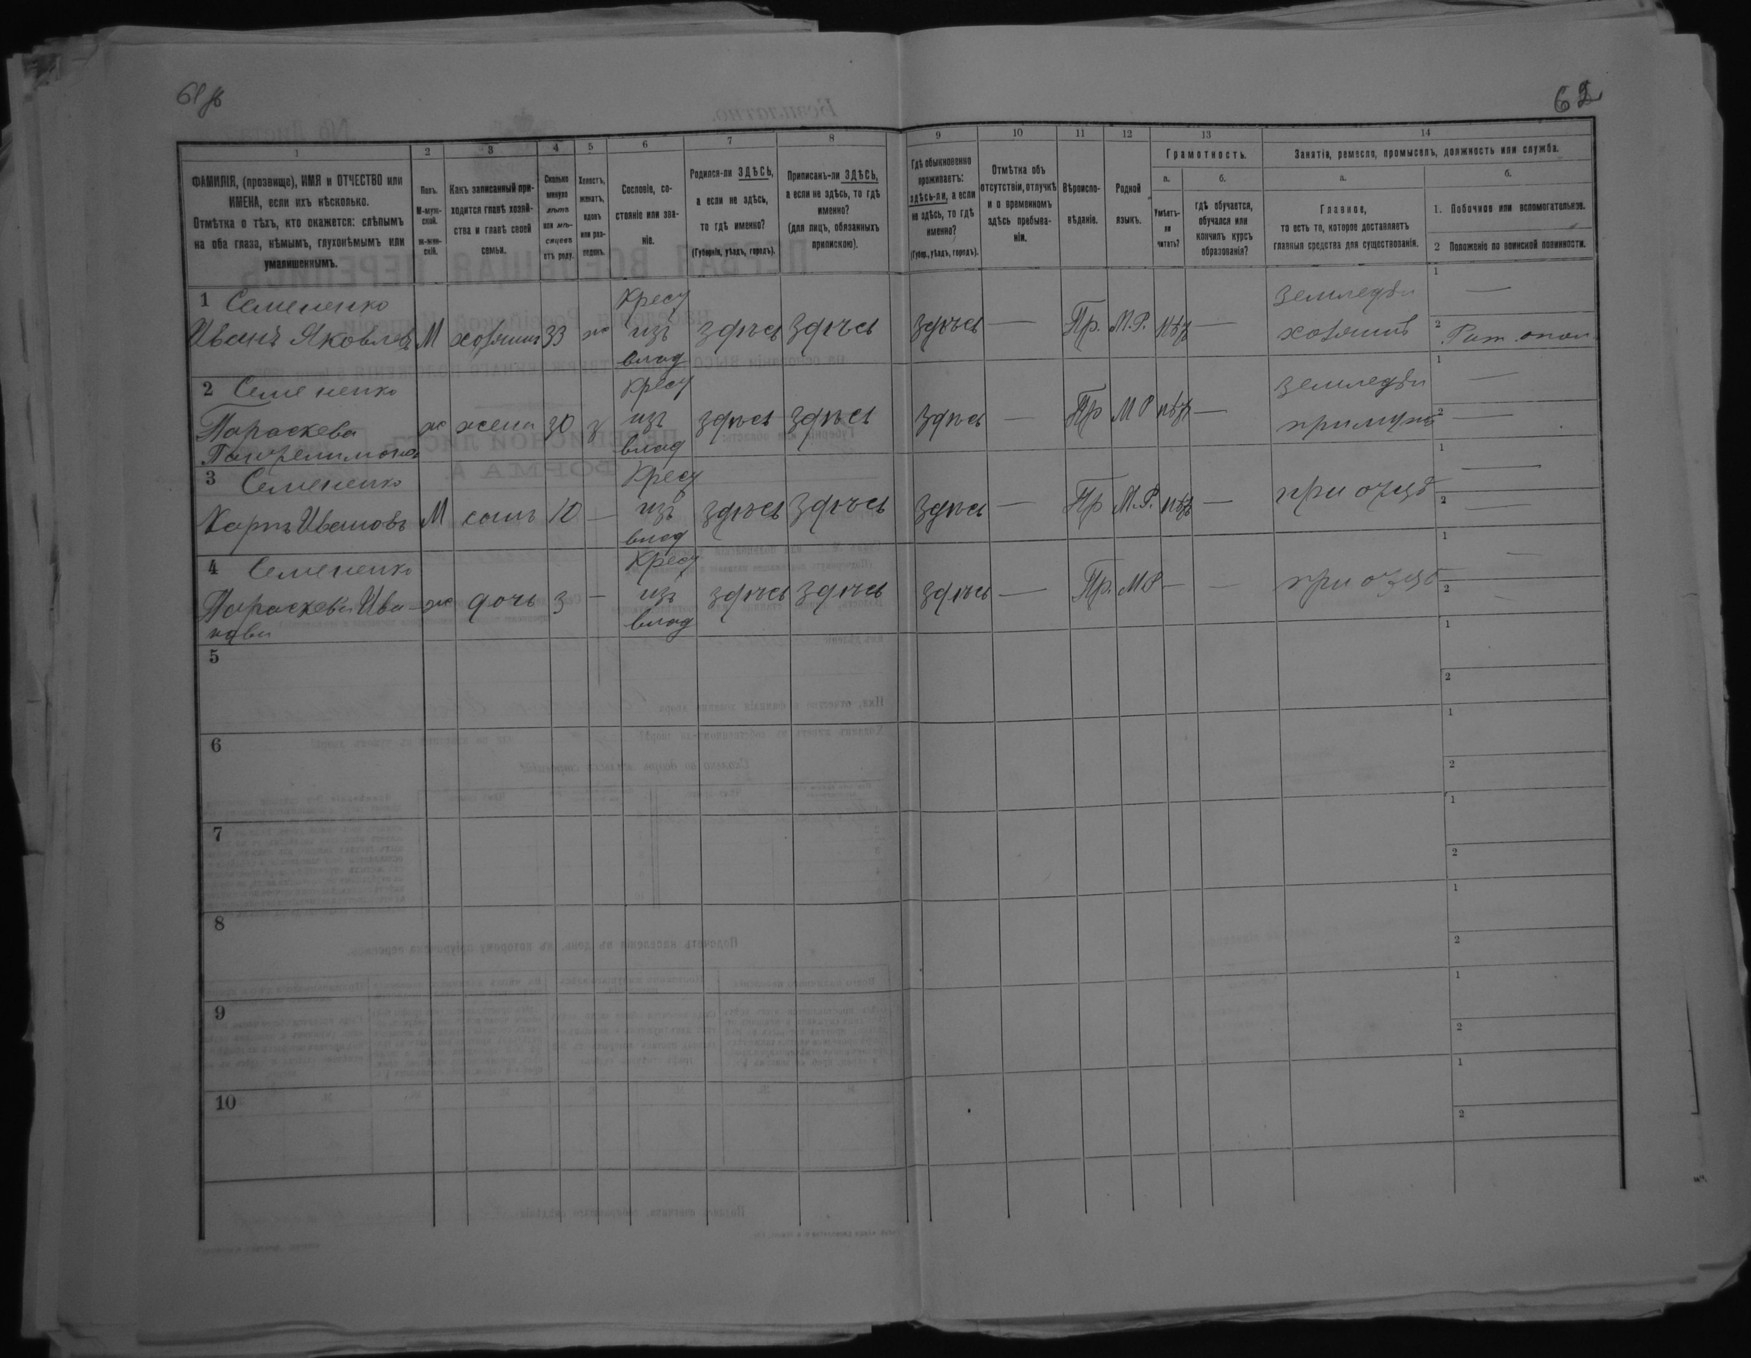 62
1
2
3
4
5
6
7
8
9
10
11
12
13
14
ФАМИЛІЯ, (прозвище), ИМЯ и ОТЧЕСТВО или
ИМЕНА, если ихъ нѣсколько.
Отмѣтка о тѣхъ, кто окажется: слѣпымъ
на оба глаза, нѣмымъ, глухонѣмымъ или
умалишеннымъ.
Полъ.
М-муж-
ской.
ж-жен-
скій.
Какъ записанный при-
ходится главѣ хозяй-
ства и главѣ своей
семьи.
Сколько
минуло
лѣтъ
или мѣ-
сяцевъ
отъ роду.
Холостъ,
женатъ,
вдовъ
или раз-
веденъ.
Сословіе, со-
стояніе или зва-
ніе.
Родился-ли ЗДѢСЬ,
а если не здѣсь,
то гдѣ именно?
(Губернія, уѣздъ, городъ).
Приписанъ-ли ЗДѢСЬ,
а если не здѣсь, то гдѣ
именно?
(для лицъ, обязанныхъ
припискою).
Гдѣ обыкновенно
проживаетъ:
здѣсь-ли, а если
не здѣсь, то гдѣ
именно?
(Губер., уѣздъ, городъ).
Отмѣтка объ
отсутствіи, отлучкѣ
и о временномъ
здѣсь пребыва-
ніи.
Вѣроиспо-
вѣданіе.
Родной
языкъ.
Грамотность.
а.
Умѣетъ-
ли
читать?
б.
Гдѣ обучается,
обучался или
кончилъ курсъ
образованія?
Занятіе, ремесло, промыселъ, должность или служба.
а.
Главное,
то есть то, которое доставляетъ
главныя средства для существованія.
б.
1. Побочное или вспомогательное.
2 Положеніе по воинской повинности.
1 Семененко
Иванъ Яковлевъ М хозяинъ 33 ж Крест из влад здѣсь здѣсь здѣсь — Пр. М.Р. нѣт —
земледѣл
хозяинъ
1 —
2 Рат. опол
2 Семененко
Параскева
ж жена 30 з Крест из влад здѣсь здѣсь здѣсь — Пр М Р нѣт —
земледѣл
при мужѣ
1 —
2 —
3 Семененко
Карпъ Ивановъ М сынъ 10 — Крест из влад здѣсь здѣсь здѣсь — Пр М.Р. нѣт —
при отцѣ
1 —
2 —
4 Семененко
Параскева Ива-
нова
ж дочь 3 — Крест из влад здѣсь здѣсь здѣсь — Пр. М Р — —
при отцѣ
1 —
2 —
5
1
2
6
1
2
7
1
2
8
1
2
9
1
2
10
1
2